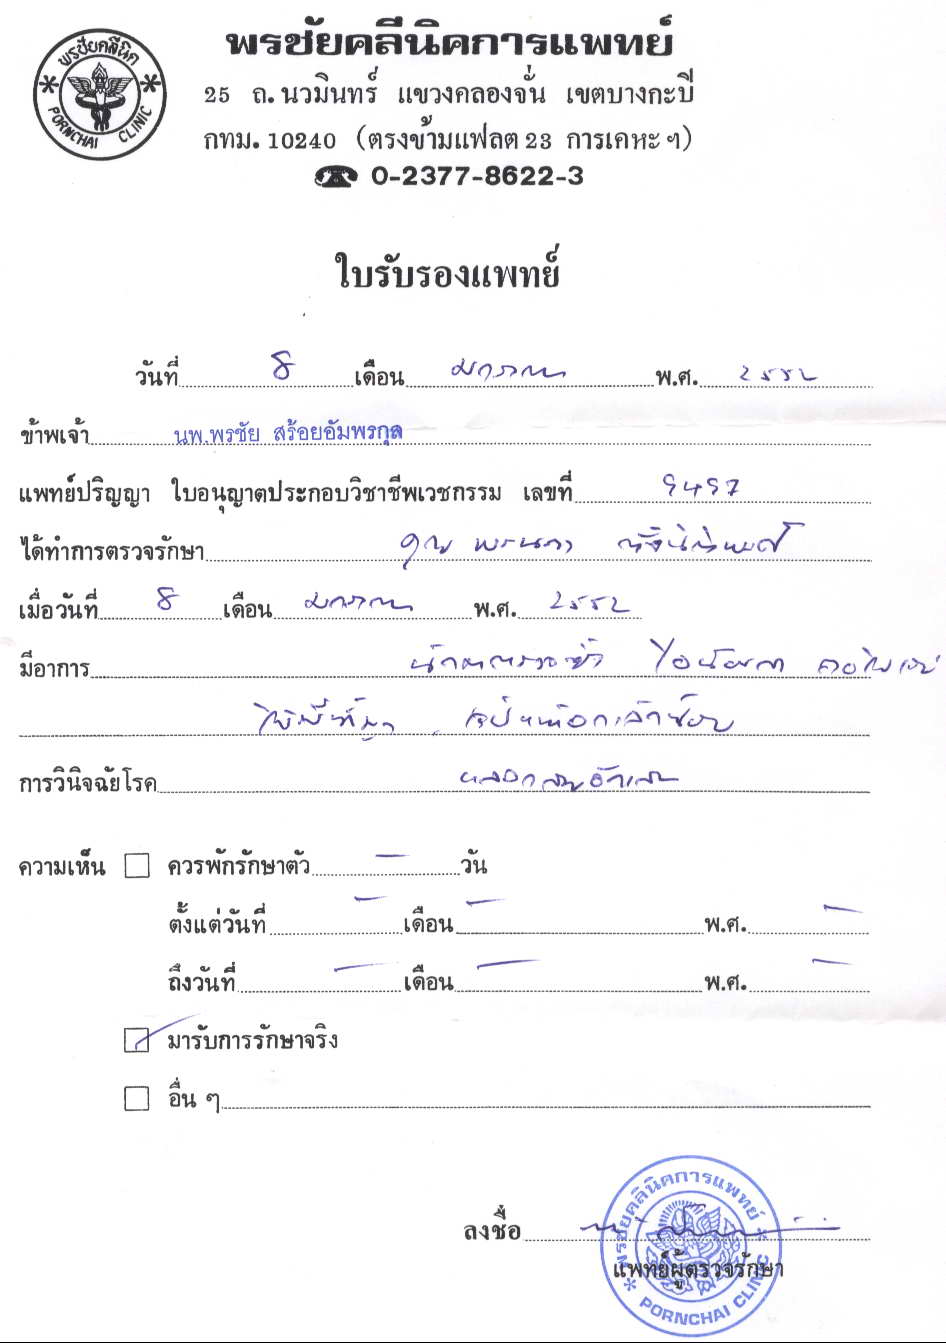 พรชัยคลีนิค
PORNCHAI CLINIC
พรชัยคลีนิคการแพทย์
25 ถ.นวมินทร์ แขวงคลองจั่น เขตบางกะปี
กทม. 10240 (ตรงข้ามแฟลต 23 การเคหะฯ)
0-2377-8622-3
ใบรับรองแพทย์
วันที่ 8 เดือน มกราคม พ.ศ. 2552
ข้าพเจ้า นพ.พรชัย สร้อยอัมพรกุล
แพทย์ปริญญา ใบอนุญาตประกอบวิชาชีพเวชกรรม เลขที่ 9497
ได้ทำการตรวจรักษา คุณ
เมื่อวันที่ 8 เดือน มกราคม พ.ศ. 2552
มีอาการ
การวินิจฉัยโรค หลอดลมอักเสบ
ความเห็น ควรพักรักษาตัว - วัน
ตั้งแต่วันที่ - เดือน - พ.ศ. -
ถึงวันที่ - เดือน - พ.ศ. -
มารับการรักษาจริง
อื่น ๆ
ลงชื่อ
แพทย์ผู้ตรวจรักษา
พรชัยคลีนิคการแพทย์
PORNCHAI CLINIC